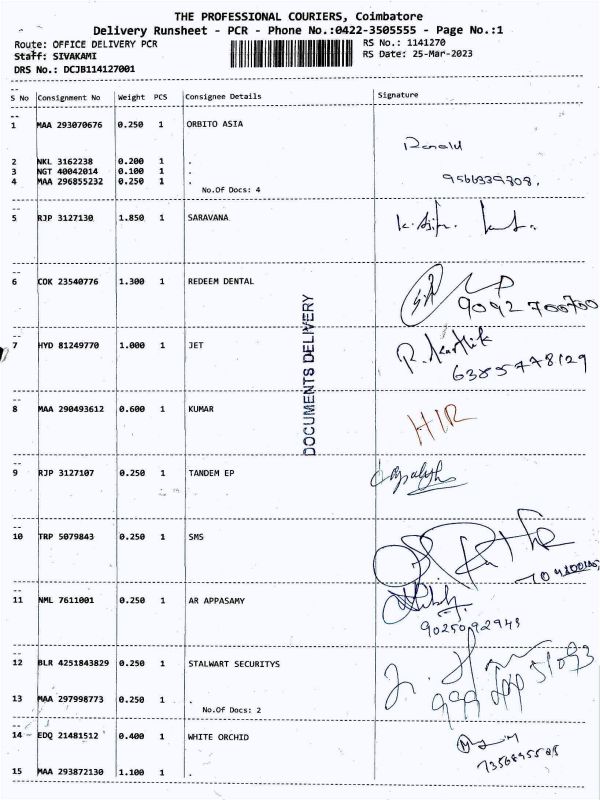 THE PROFESSIONAL COURIERS, Coimbatore
Delivery Runsheet - PCR - Phone No.:0422-3505555 - Page No.:1
Route: OFFICE DELIVERY PCR
Staff: SIVAKAMI
DRS No.: DCJB114127001
RS No.: 1141270
RS Date: 25-Mar-2023
S No Consignment No Weight PCS Consignee Details Signature
1 MAA 293070676 0.250 1 ORBITO ASIA
Ronald
2 NKL 3162238 0.200 1 .
3 NGT 40042014 0.100 1 .
4 MAA 296855232 0.250 1 .
9566339708.
No.Of Docs: 4
5 RJP 3127130 1.850 1 SARAVANA
6 COK 23540776 1.300 1 REDEEM DENTAL
9092700700
DOCUMENTS DELIVERY
7 HYD 81249770 1.000 1 JET
R. Karthik
63855778129
8 MAA 290493612 0.600 1 KUMAR
HIR
9 RJP 3127107 0.250 1 TANDEM EP
10 TRP 5079843 0.250 1 SMS
11 NML 7611001 0.250 1 AR APPASAMY
9025092943
12 BLR 4251843829 0.250 1 STALWART SECURITYS
13 MAA 297998773 0.250 1 .
No.Of Docs: 2
14 EDQ 21481512 0.400 1 WHITE ORCHID
15 MAA 293872130 1.100 1 .